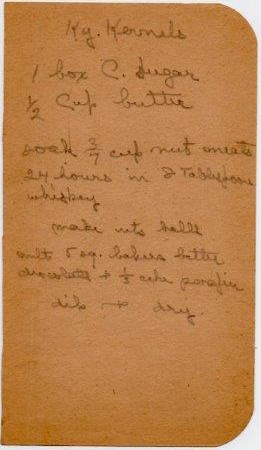 Ky. Kernels
1 box C. Sugar
1/2 Cup butter
soak 3/4 cup nut meats
24 hours in 8 Tablespoons
whiskey
make into balls
melt 5 sq. bakers bitter
chocolate + 1/3 cake parafin
dib + dry.